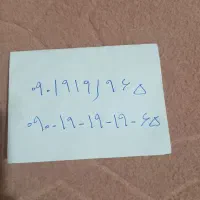 ۰۹۰۱۹۱۹۱۹۶۵
۰۹۰-۱۹-۱۹-۱۹-۶۵